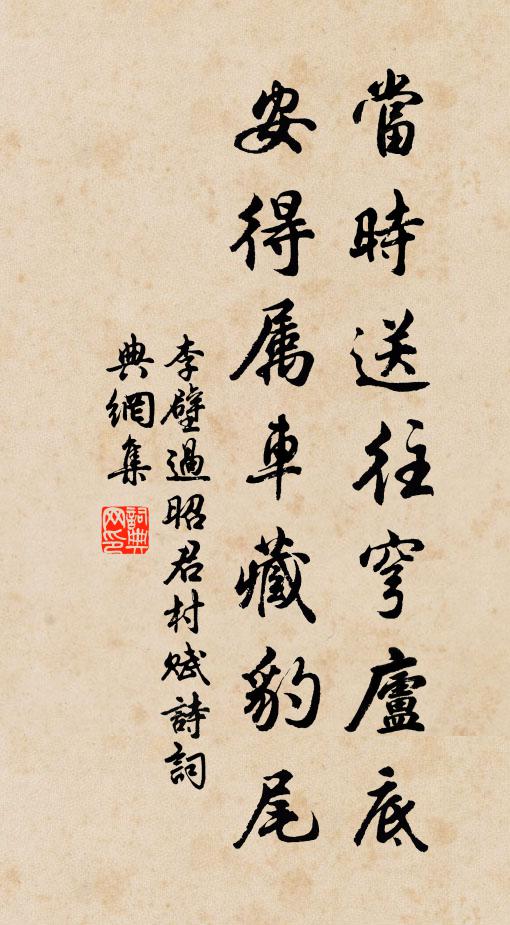 當時送往穹廬底
安得属車藏豹尾
李壁過昭君村賦詩詞
典網集
詞典网印